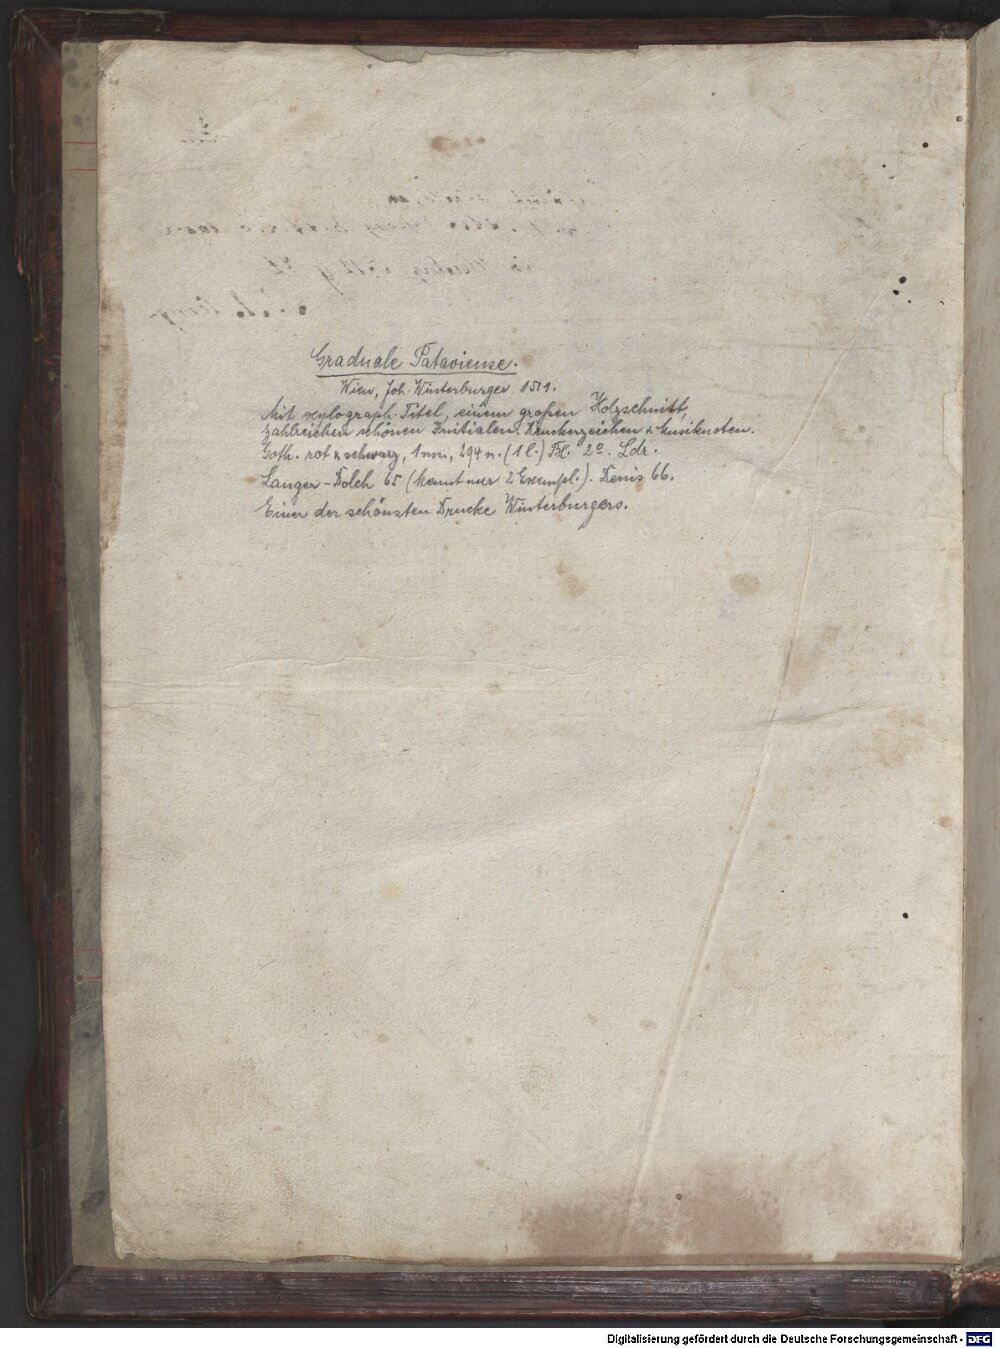 Graduale Pataviense.
Wien, Joh. Winterburger 1511.
Mit xylograph. Titel, einem großen Holzschnitt,
zahlreichen schönen Initialen, Druckerzeichen & Musiknoten.
Goth. rot & schwarz, 1 nn., 294 n. (1 l.) Bl. 2°. Ldr.
Langer-Dolch 65 (kennt nur 2 Exempl.). Denis 66.
Einer der schönsten Drucke Winterburgers.
Digitalisierung gefördert durch die Deutsche Forschungsgemeinschaft - DFG